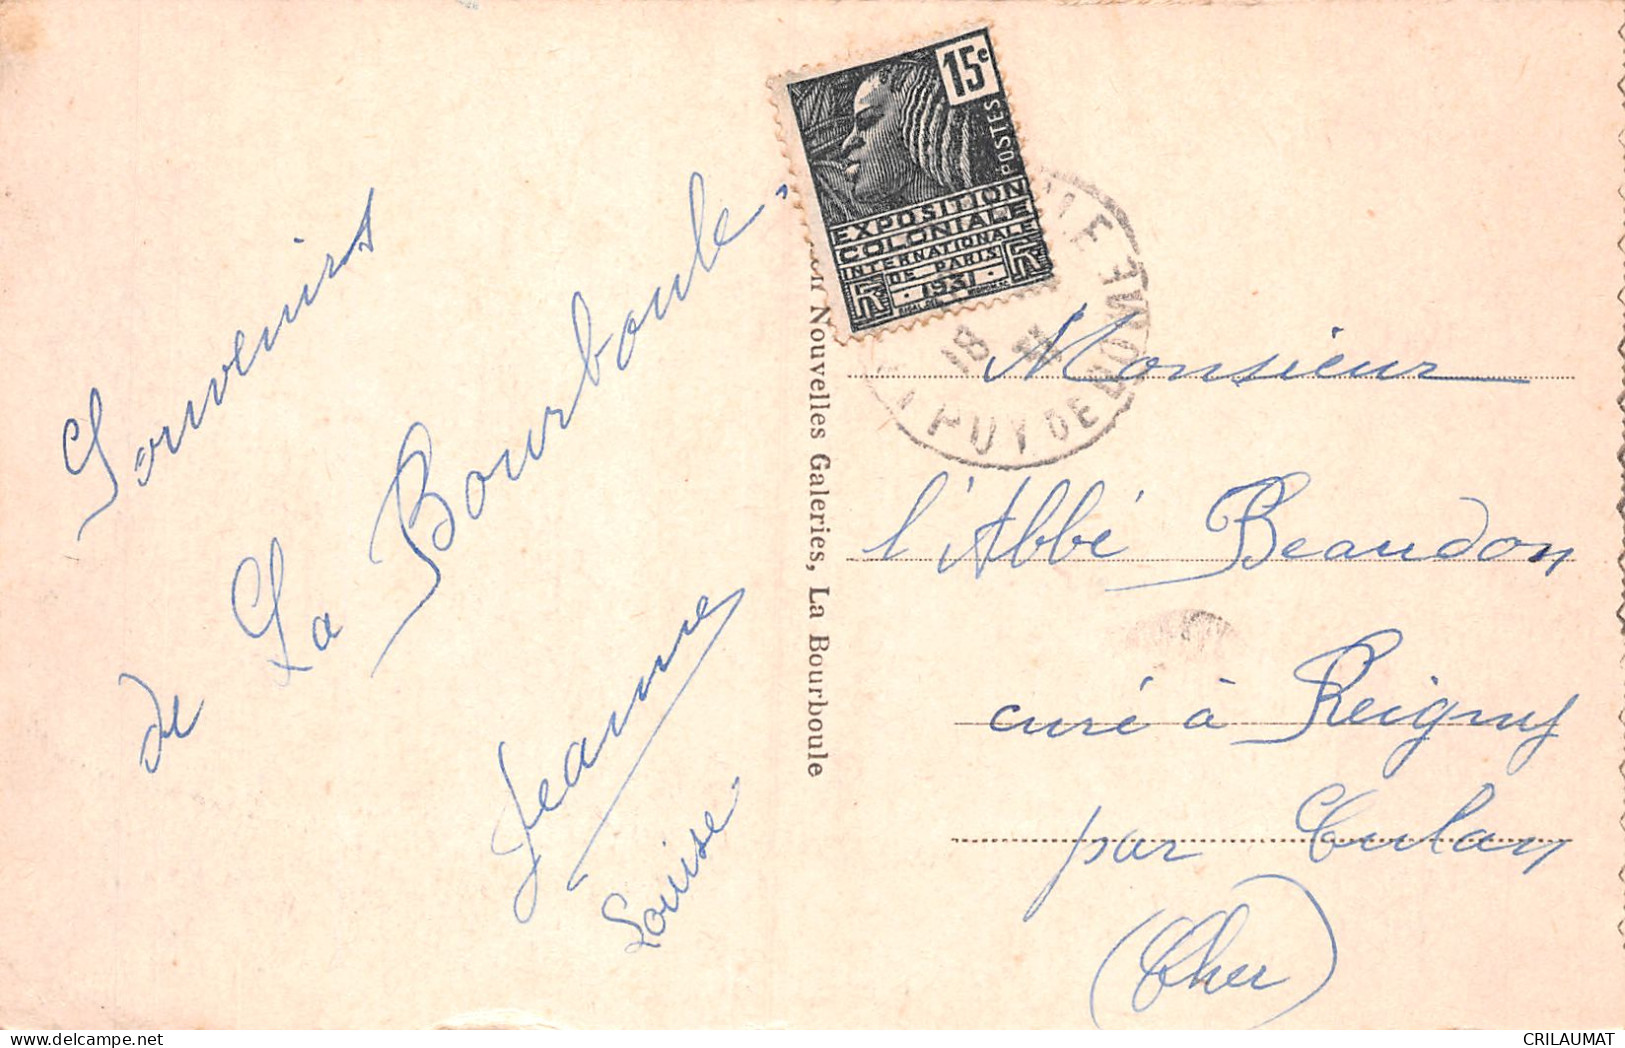 Souvenirs
de La Bourboule.
Jeanne
Louise
Nouvelles Galeries, La Bourboule
15c
POSTES
EXPOSITION
COLONIALE
INTERNATIONALE
DE PARIS
1931
RF RF
18
PUY DE DOME
Monsieur
l'Abbé Beaudon
curé à Reigny
par Culan
(Cher)
CRILAUMAT